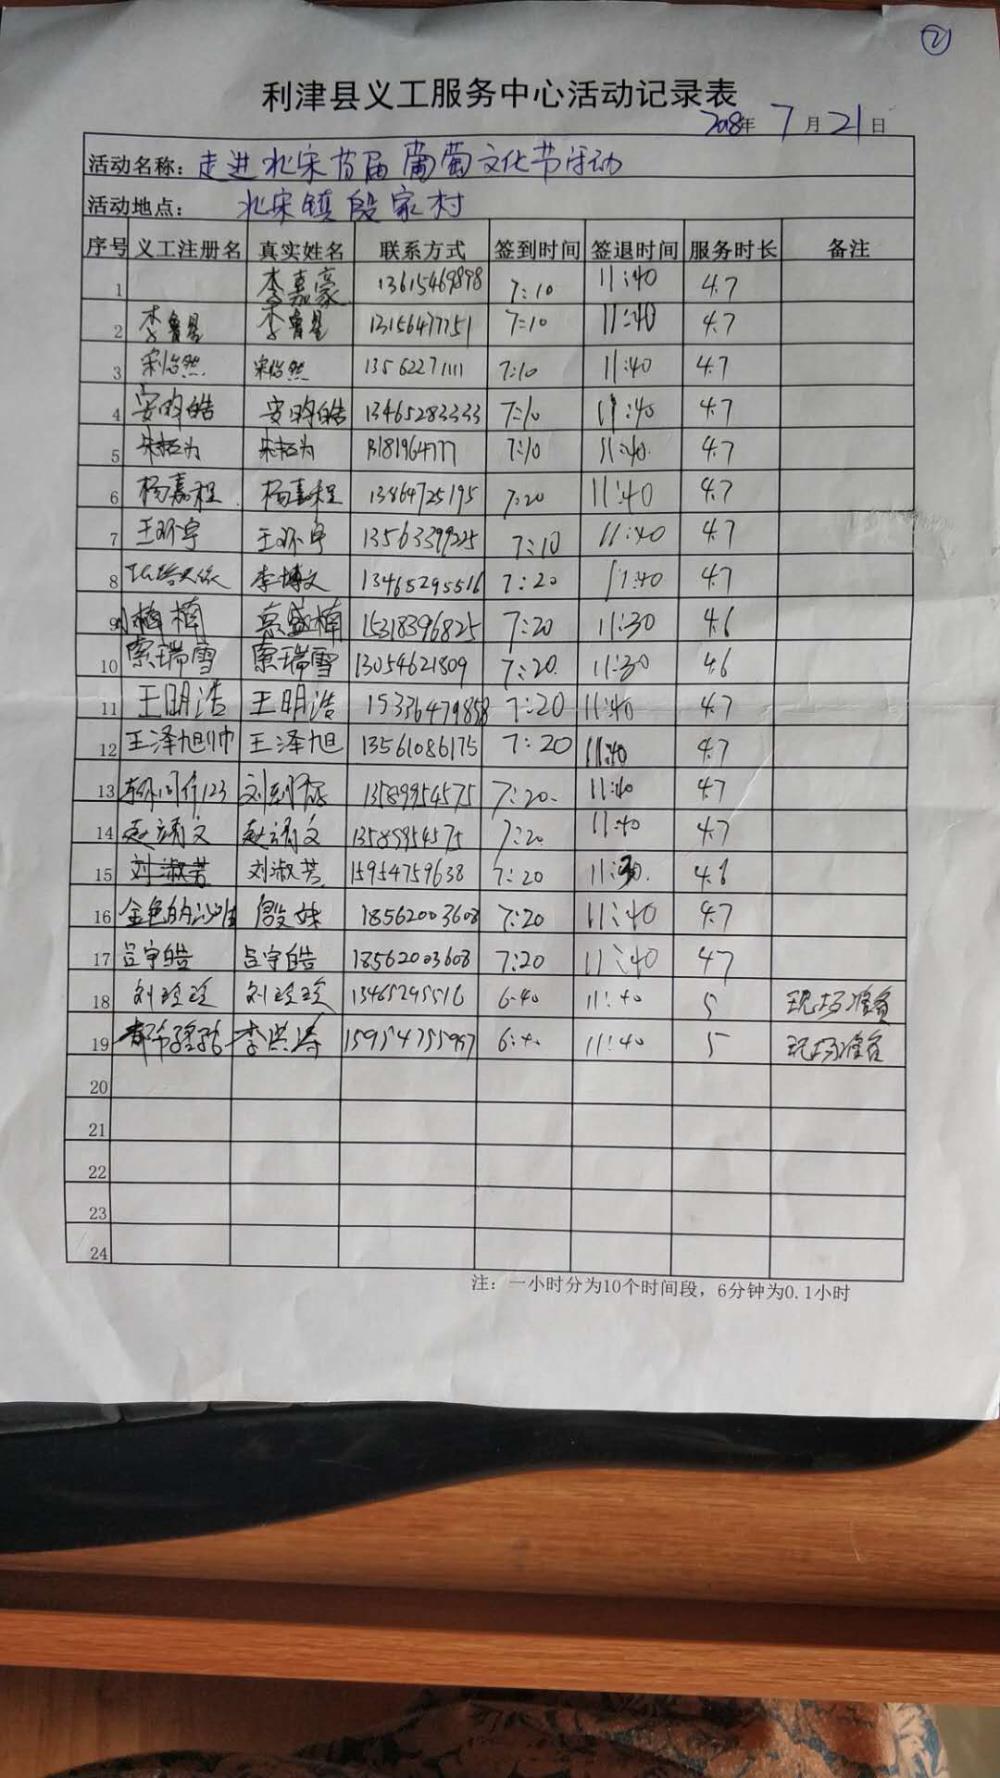 ②
利津县义工服务中心活动记录表
2018年 7月21日
活动名称: 走进北宋首届葡萄文化节活动
活动地点: 北宋镇殷家村
序号 义工注册名 真实姓名 联系方式 签到时间 签退时间 服务时长 备注
1 李嘉豪 13615469898 7:10 11:40 4.7
2 李鲁星 李鲁星 13156477151 7:10 11:40 4.7
3 宋怡然 宋怡然 13562271111 7:10 11:40 4.7
4 安昀皓 安昀皓 13465283333 7:10 11:40 4.7
5 宋拓为 宋拓为 7:10 11:40 4.7
6 杨嘉程 杨嘉程 13864725195 7:20 11:40 4.7
7 王环宇 王环宇 13563399225 7:10 11:40 4.7
8 李博文 13465295516 7:20 11:40 4.7
9 楠楠 盛楠 15318396825 7:20 11:30 4.6
10 索瑞雪 索瑞雪 13054621809 7:20 11:30 4.6
11 王明浩 王明浩 15336479858 7:20 11:40 4.7
12 王泽旭帅 王泽旭 13561086175 7:20 11:40 4.7
13 刘 13589954575 7:20 11:40 4.7
14 赵靖文 赵靖文 13589954575 7:20 11:40 4.7
15 刘淑芳 刘淑芳 15954759638 7:20 11:30 4.6
16 金色的沙 殷姝 18562003608 7:20 11:40 4.7
17 吕宇皓 吕宇皓 18562003608 7:20 11:40 47
18 刘玲玲 刘玲玲 13465295516 6:40 11:40 5 现场准备
19 李洪涛 6:40 11:40 5 现场准备
20
21
22
23
24
注: 一小时分为10个时间段, 6分钟为0.1小时